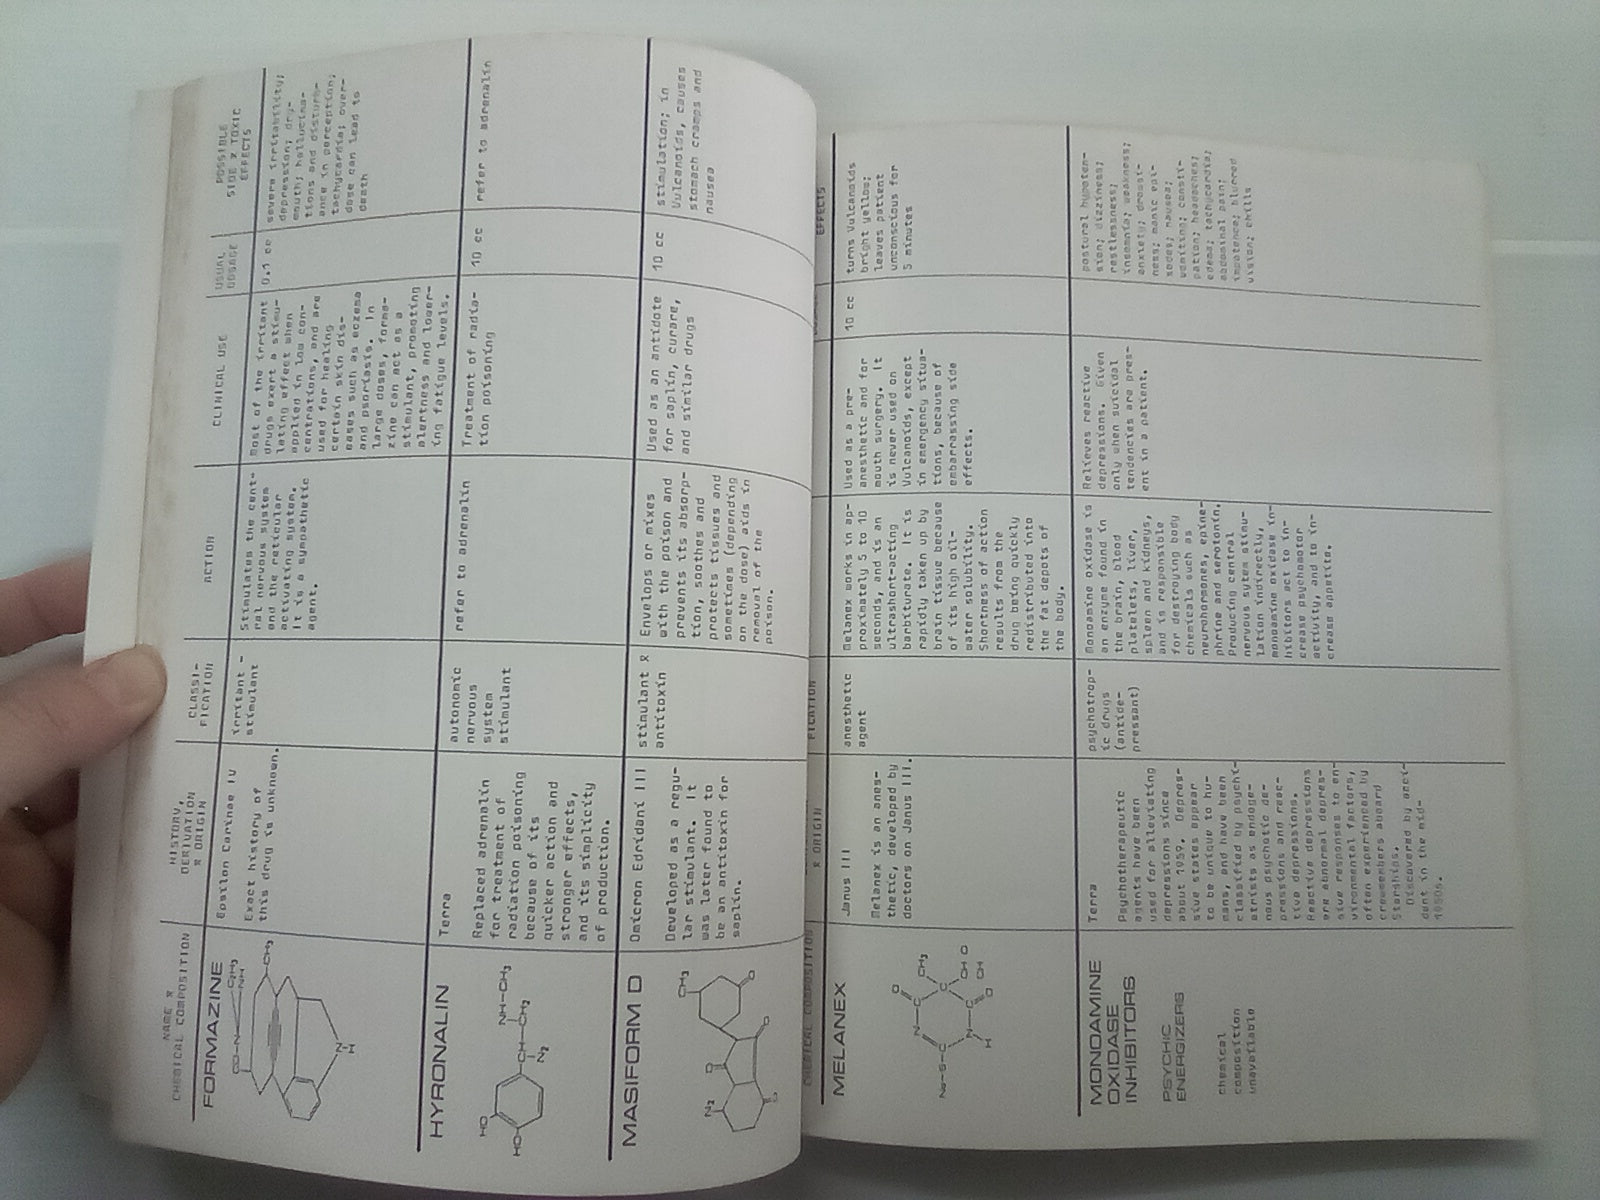 NAME &
CHEMICAL COMPOSITION
HISTORY,
DERIVATION
& ORIGIN
CLASSI-
FICATION
ACTION
CLINICAL USE
USUAL
DOSAGE
POSSIBLE
SIDE & TOXIC
EFFECTS
FORMAZINE
Epsilon Carinae IV
Exact history of
this drug is unknown.
irritant -
stimulant
Stimulates the cent-
ral nervous system
and the reticular
activating system.
It is a sympathetic
agent.
most of the irritant
drugs exert a stimu-
lating effect when
applied in low con-
centrations, and are
used for healing
certain skin dis-
eases such as eczema
and psoriasis. In
large doses, forma-
zine can act as a
stimulant, promoting
alertness and lower-
ing fatigue levels.
0.1 cc
severe irritability;
depression; dry-
mouth; hallucina-
tions and disturb-
ance in perception;
tachycardia; over-
dose can lead to
death
HYRONALIN
Terra
Replaced adrenalin
for treatment of
radiation poisoning
because of its
quicker action and
stronger effects,
and its simplicity
of production.
autonomic
nervous
system
stimulant
refer to adrenalin
Treatment of radia-
tion poisoning
10 cc
refer to adrenalin
MASIFORM D
Omicron Edridani III
Developed as a regu-
lar stimulant. It
was later found to
be an antitoxin for
saplin.
stimulant &
antitoxin
Envelops or mixes
with the poison and
prevents its absorp-
tion, soothes and
protects tissues and
sometimes (depending
on the dose) aids in
removal of the
poison.
Used as an antidote
for saplin, curare,
and similar drugs
10 cc
stimulation; in
Vulcanoids, causes
stomach cramps and
nausea
CHEMICAL COMPOSITION
& ORIGIN
FICATION
EFFECTS
MELANEX
Janus III
Melanex is an anes-
thetic, developed by
doctors on Janus III.
anesthetic
agent
Melanex works in ap-
proximately 5 to 10
seconds, and is an
ultrashort-acting
barbiturate. It is
rapidly taken up by
brain tissue because
of its high oil-
water solubility.
Shortness of action
results from the
drug being quickly
redistributed into
the fat depots of
the body.
Used as a pre-
anesthetic and for
mouth surgery. It
is never used on
Vulcanoids, except
in emergency situa-
tions, because of
embarrassing side
effects.
10 cc
turns Vulcanoids
bright yellow;
leaves patient
unconscious for
5 minutes
MONOAMINE
OXIDASE
INHIBITORS
PSYCHIC
ENERGIZERS
chemical
composition
unavailable
Terra
Psychotherapeutic
agents have been
used for alleviating
depressions since
about 1959. Depres-
sive states appear
to be unique to hu-
mans, and have been
classified by psychi-
atrists as endoge-
nous psychotic de-
pressions and reac-
tive depressions.
Reactive depressions
are abnormal depres-
sive responses to en-
vironmental factors,
often experienced by
crewmembers aboard
Starships.
Discovered by acci-
dent in the mid-
1950s.
psychotrop-
ic drugs
(antide-
pressant)
Monoamine oxidase is
an enzyme found in
the brain, blood
platelets, liver,
spleen and kidneys,
and is responsible
for destroying body
chemicals such as
neurohormones, epine-
phrine and serotonin.
Producing central
nervous sytem stimu-
lation indirectly,
monoamine oxidase in-
hibitors act to in-
crease psychomotor
activity, and to in-
crease appetite.
Relieves reactive
depressions. Given
only when suicidal
tendencies are pres-
ent in a patient.
postural hypoten-
sion; dizziness;
restlessness;
insomnia; weakness;
anxiety; drowsi-
ness; manic epi-
sodes; nausea;
vomiting; consti-
pation; headaches;
edema; tachycardia;
abdominal pain;
impotence; blurred
vision; chills